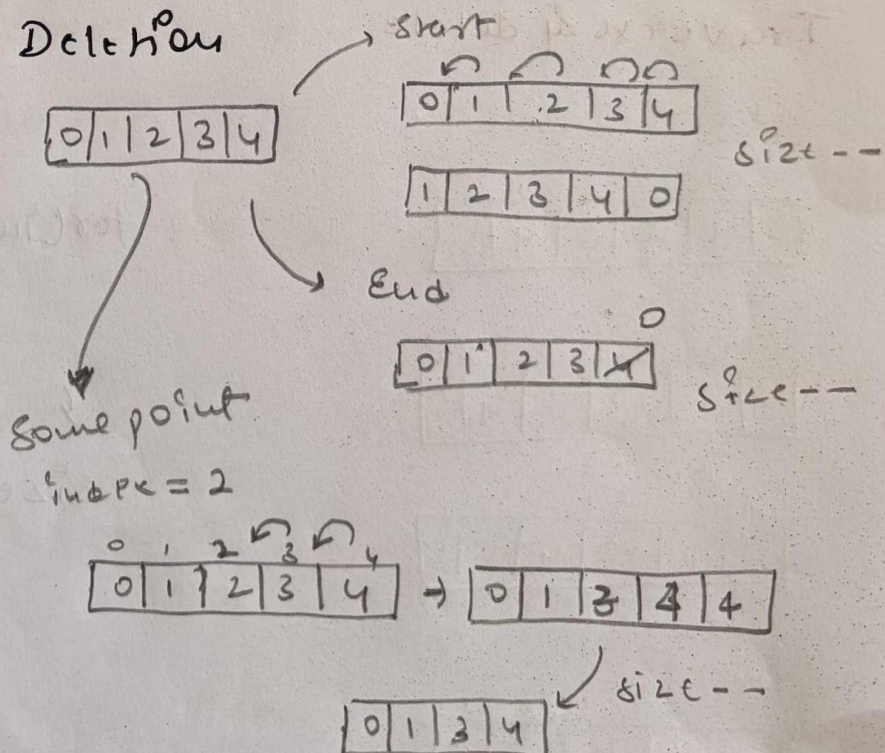 Deletion
0 1 2 3 4
Start
0 1 2 3 4
size --
1 2 3 4 0
End
0
0 1 2 3 4
size --
Some point
index = 2
0 1 2 3 4
0 1 2 3 4 → 0 1 3 4 4
size --
0 1 3 4